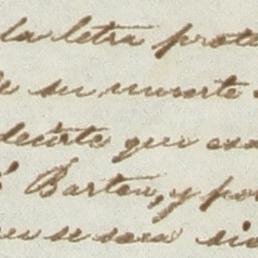 la letra prote
de su muerte
decirte que exa
Barton, y por
se sea sie